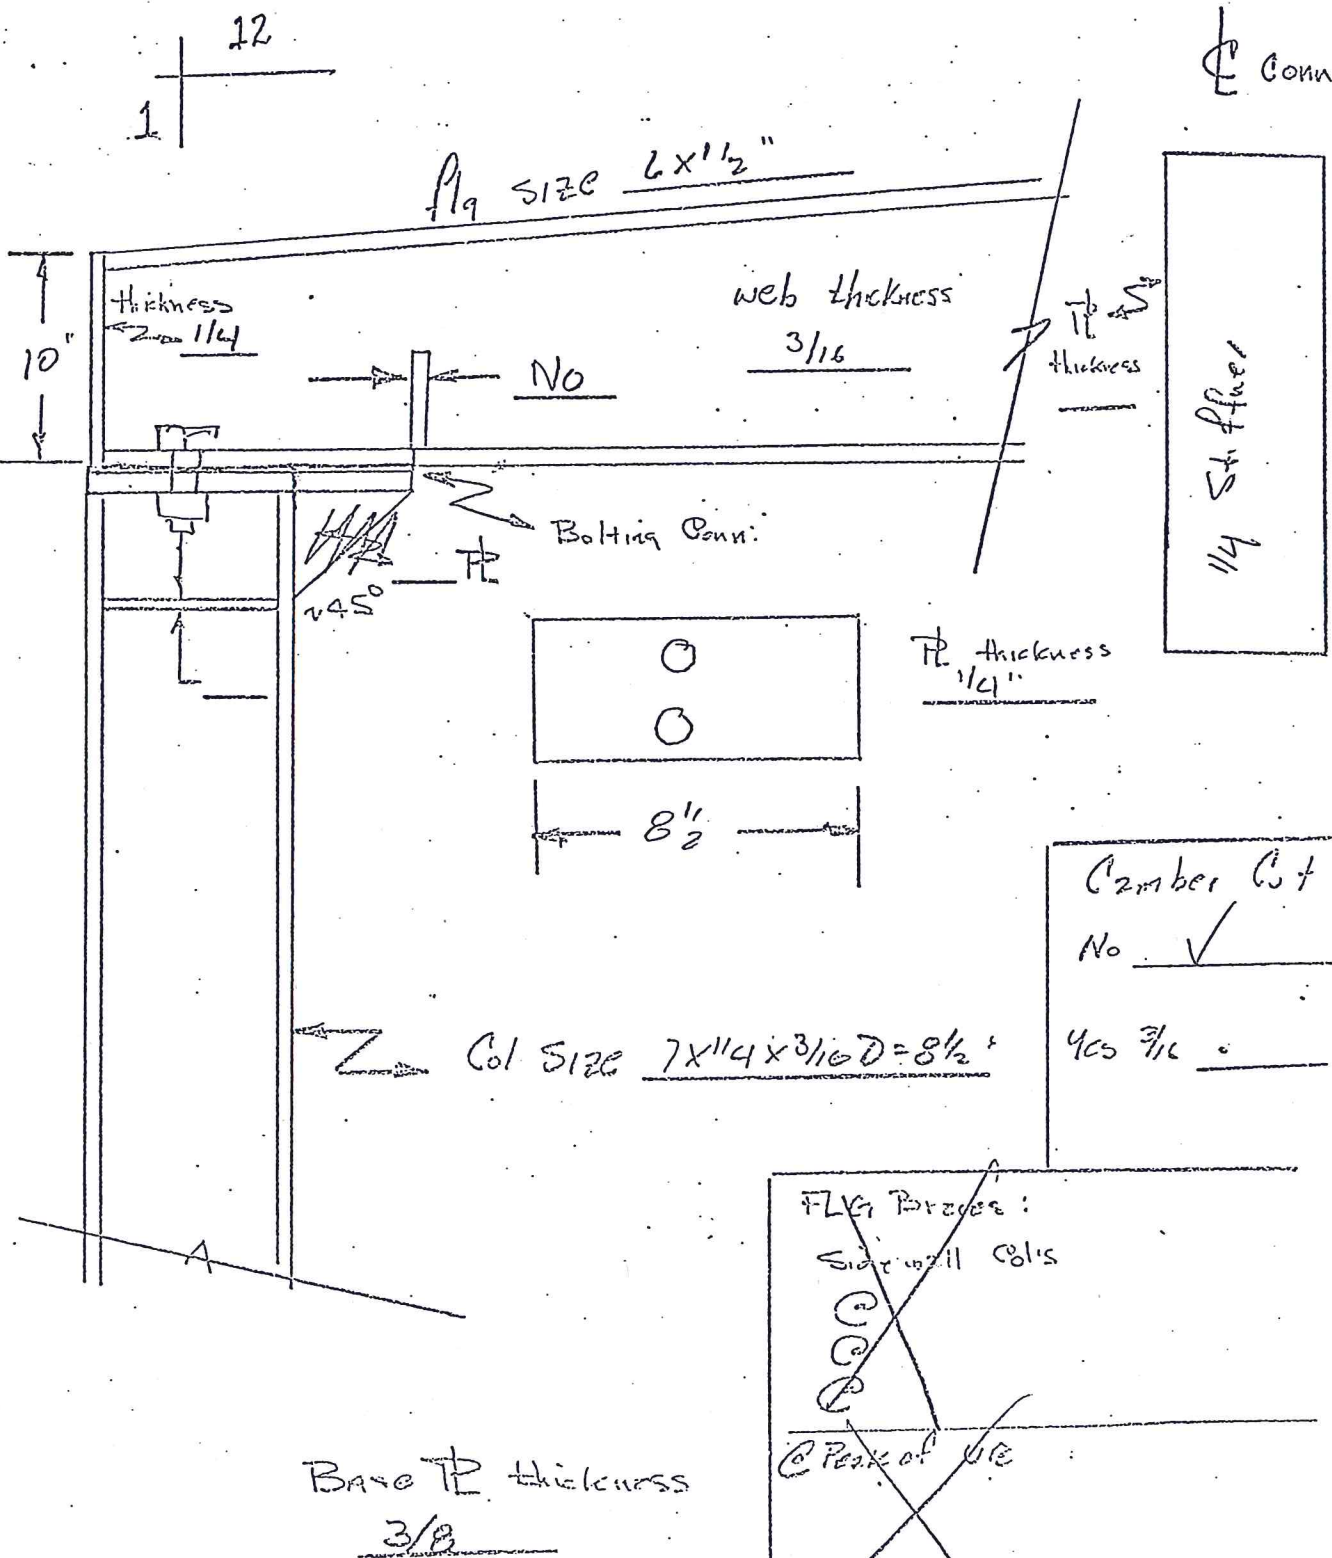 12
1
℄ Conn
flg size 6 x 1/2"
thickness
1/4
10"
No
web thickness
3/16
PL
thickness
1/4 Stiffner
Bolting Conn:
PL
~45°
PL thickness
1/4"
8 1/2
Camber Cut
No ✓
Yes 3/16
Col Size 7x1/4x3/16 D=8 1/2"
FLG Braces:
Sidewall Col's
@
@
@
@ Peak of
Base PL thickness
3/8